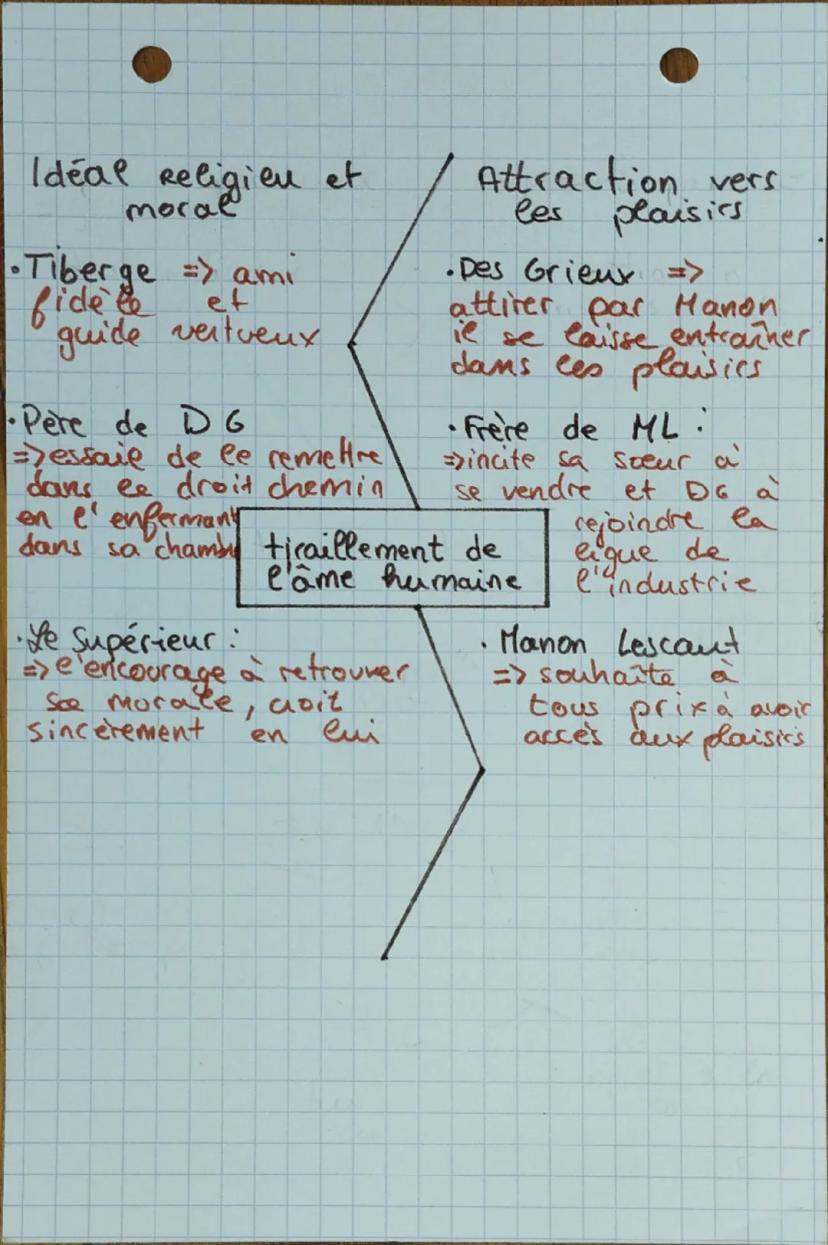 Idéal Religieu et
moral
• Tiberge => ami
fidèle et
guide vertueux
• Père de DG
=> essaie de le remettre
dans le droit chemin
en l'enfermant
dans sa chambre
• Le Supérieur :
=> l'encourage à retrouver
sa morale, croit
sincèrement en lui
tiraillement de
l'âme humaine
Attraction vers
les plaisirs
• Des Grieux =>
attirer par Manon
il se laisse entraîner
dans les plaisirs
• Frère de ML :
=> incite sa sœur à
se vendre et DG à
rejoindre la
ligue de
l'industrie
• Manon Lescaut
=> souhaite à
tous prix à avoir
accès aux plaisirs